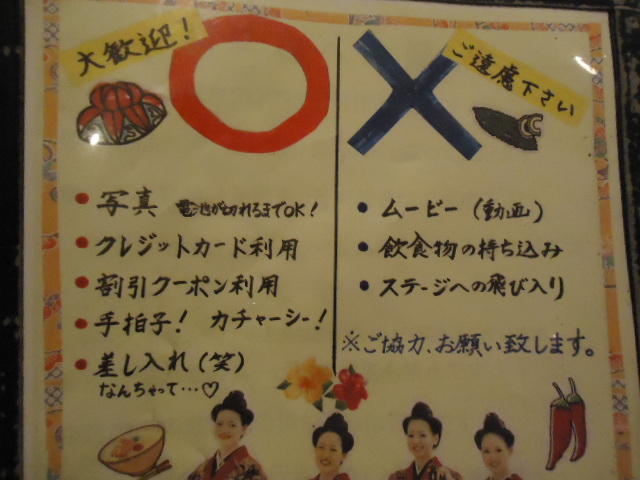 大歓迎！
・写真 電池が切れるまでOK！
・クレジットカード利用
・割引クーポン利用
・手拍子！ カチャーシー！
・差し入れ（笑）
なんちゃって…♡
ご遠慮下さい
・ムービー（動画）
・飲食物の持ち込み
・ステージへの飛び入り
※ご協力、お願い致します。